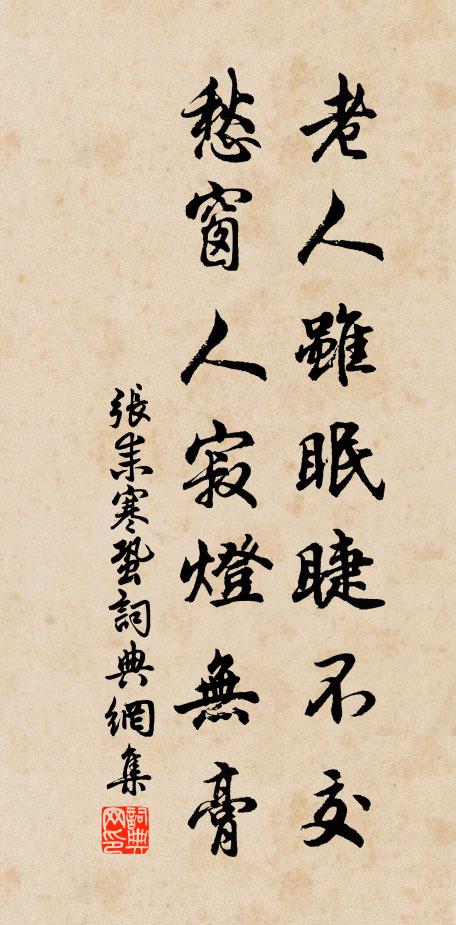 老人雖眠睫不交
愁窗人寂燈無膏
張耒寒蛩詞典網集
詞典网印